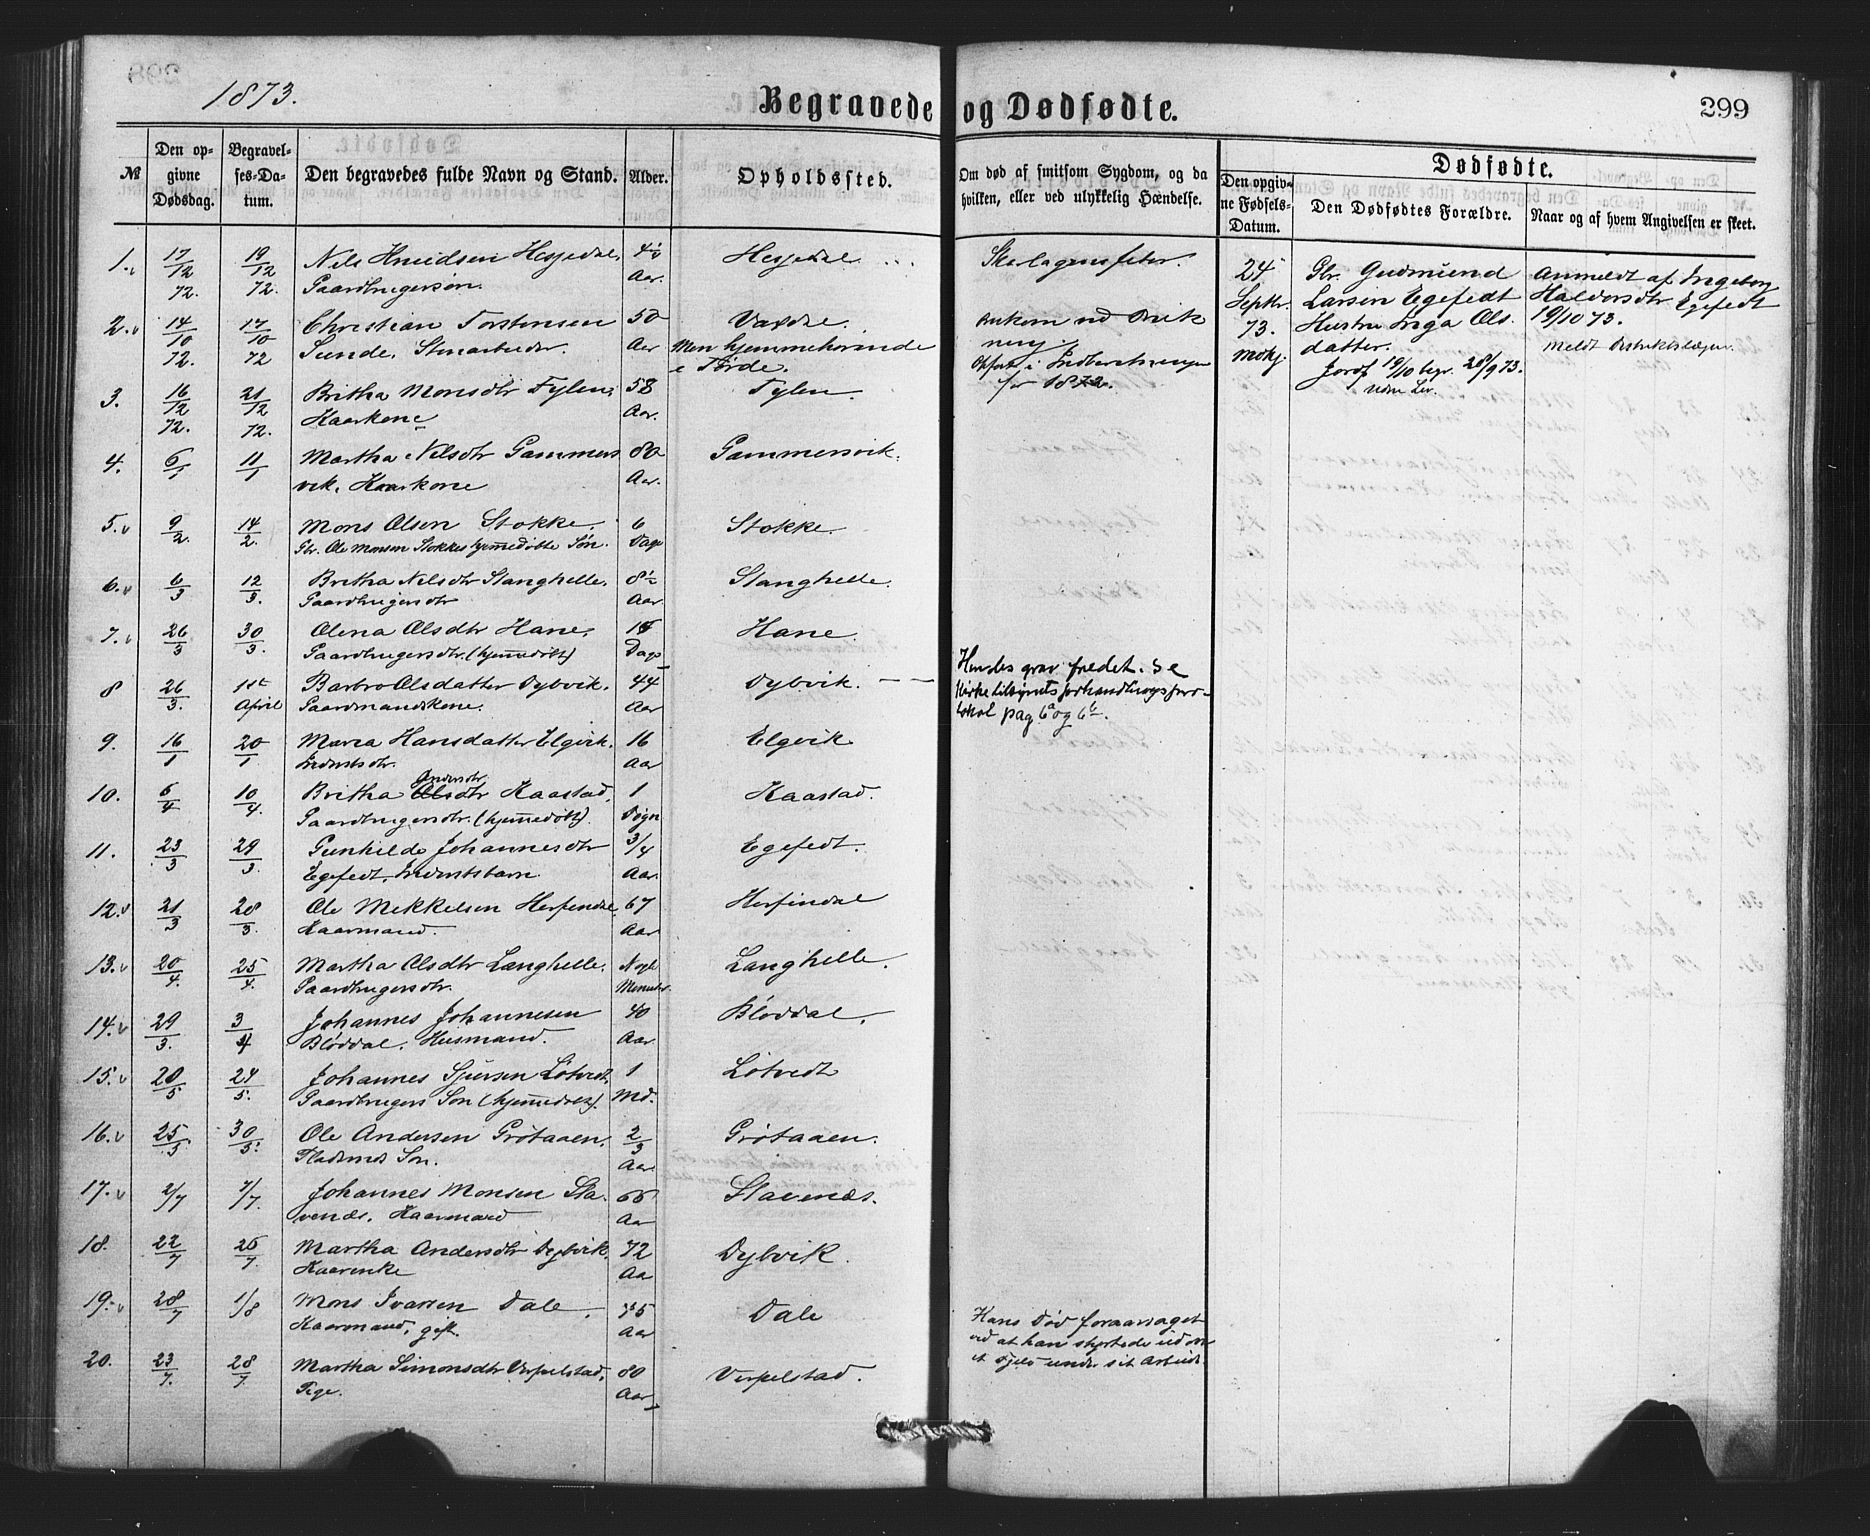 1873.
Begravede og Dødfødte.
299
№
Den opgivne Dødsdag.
Begravelses-Datum.
Den begravedes fulde Navn og Stand.
Alder.
Opholdssted.
Om død af smitsom Sygdom, og da hvilken, eller ved ulykkelig Hændelse.
Dødfødte.
Den opgivne Fødsels-Datum.
Den Dødfødtes Forældre.
Naar og af hvem Angivelsen er skeet.
1. 17/12 72. 19/12 72. Nils Knudsen Hesjedal 4½ Aar. Hesjedal Skarlagensfeber.
Gaardbrugersøn.
2. 14/10 72. 17/10 72 Christian Torstensen 50 Aar Vaxdal.
Sunde, Stenarbeider. Men hjemmehørende i Førde.
Omkom ved Drukning. Opført i Indberetningen for 1872.
3. 16/12 72. 21/12 72. Britha Monsdtr Fylen, 58 Aar. Fylen.
Kaarkone
4. 6/1 11/1 Martha Nilsdtr Gammersvik, Kaarkone 80 Aar. Gammersvik.
5. 9/2. 14/2. Mons Olsen Stokke. 6 Dage Stokke.
Gbr. Ole Monsen Stokkes hjemmedøbte Søn.
6. 6/3 12/3. Britha Nilsdtr Stanghelle. 8½ Aar. Stanghelle.
Gaardbrugersdtr
7. 26/3 30/3. Olena Olsdtr Hane. Dage Hane.
Gaardbrugersdtr. (hjemmedøbt)
8 26/3. 1st April Barbro Olsdatter Dybvik. 44 Aar Dybvik.
Gaardmandskone.
Hendes grav fredet. Se
Kirketilsynets forhandlingsprotokol pag 6a og 6b.
9. 16/1 20/1 Maria Hansdatter Elgvik. 16 Aar Elgvik
Inderstsdtr.
10. 6/4 10/4. Britha Olsdtr Andersdtr Kaastad, 1 Døgn Kaastad.
Gaardbrugersdtr. (hjemmedøbt).
11. 23/3 29/3. Gunhilde Johannesdtr 3/4 Aar. Egefedt.
Egefedt, Inderstsbarn.
12. 21/3 28/3. Ole Mikkelsen Herfindal, 67 Aar Herfindal
Kaarmand.
13. 20/4. 25/4. Martha Olsdtr Langhelle. Nogle Minuter. Langhelle.
Gaardbrugersdtr.
14. 29/3. 3/4 Johannes Johannesen 40 Aar. Bløddal.
Bløddal. Husmand.
15. 20/5 24/5. Johannes Sjursen Løtvedt, 1 Md. Løtvedt
Gaardbrugers Søn (hjemmedøbt).
16. 25/5. 30/5. Ole Andersen Grøtaaen. 2/3 Aar. Grøtaaen.
Pladsmds Søn.
17. 2/7 7/7. Johannes Monsen Stavenæs. Kaarmand 66 Aar Stavenæs.
18. 22/7 26/7. Martha Andersdtr Dybvik. 72 Aar Dybvik.
Kaarenke
19. 28/7 1/8 Mons Ivarsen Dale. 75 Aar Dale
Kaarmand, gift.
Hans Død foraarsaget
ved at han styrtede ud over
et Fjeld under sit Arbeide.
20. 23/7. 28/7 Martha Simonsdtr Verpelstad, 80 Aar Verpelstad.
Pige.
24 Septbr. 73. Gbr. Gudmund
Larsen Egefedt
Hustru Inga Olsdatter.
Jordf 19/10 begr. 28/9 73.
Anmeldt af Ingeborg
Haldorsdtr Egefedt
19/10 73.
Meldt Distriktslægen.